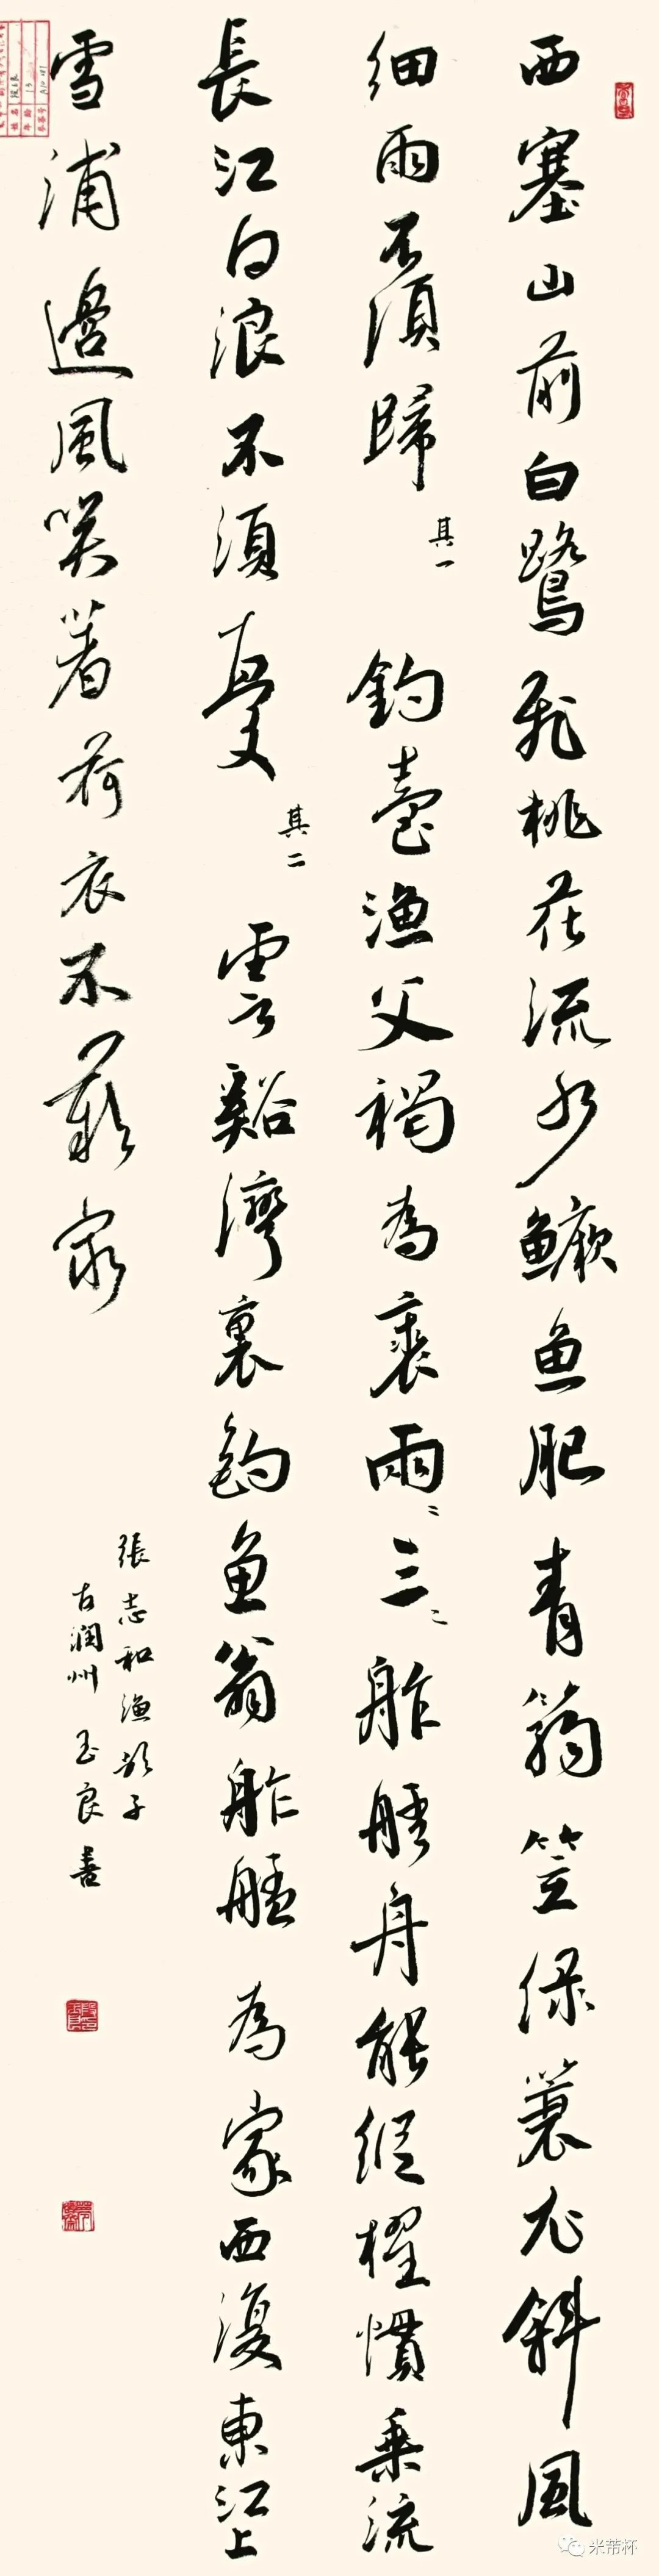 西塞山前白鷺飛桃花流水鱖魚肥青篛笠綠蓑衣斜風
細雨不須歸 其一 釣臺漁父褐為裘兩〻三〻舴艋舟能縱櫂慣乘流
長江白浪不須憂 其二 雲谿灣裏釣魚翁舴艋為家西復東江上
雪浦邊風笑著荷衣不歎窮
張志和漁歌子
古潤州 玉良書
米芾杯